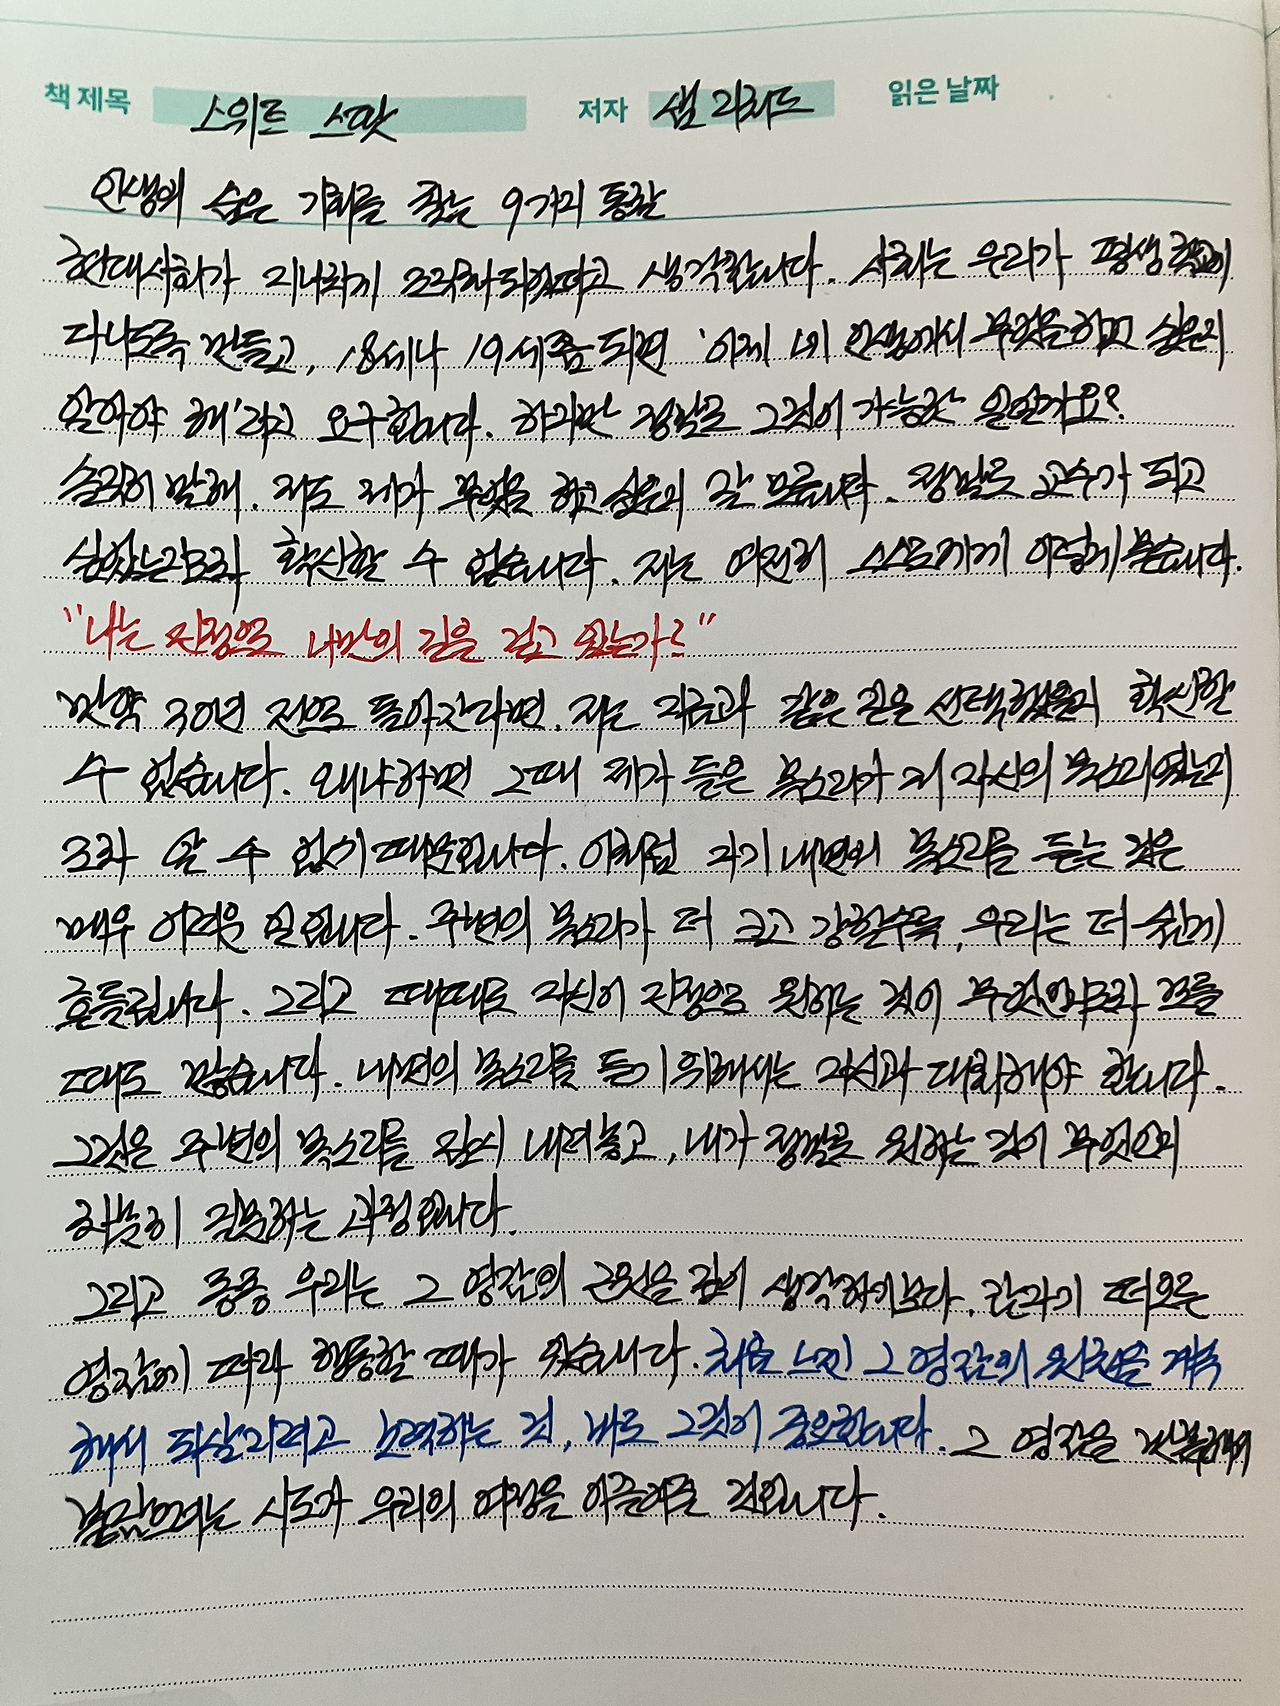 책 제목 스위트 스팟 저자 샘 리처드 읽은 날짜
인생의 숨은 기회를 찾는 9가지 통찰
현대사회가 지나치게 조직화되었다고 생각합니다. 사회는 우리가 평생 학교에
다니도록 만들고, 18세나 19세쯤 되면 '이제 네 인생에서 무엇을 하고 싶은지
알아야 해'라고 요구합니다. 하지만 정말로 그것이 가능한 일인가요?
솔직히 말해, 저도 제가 무엇을 하고 싶은지 잘 모릅니다. 정말로 교수가 되고
싶었는지조차 확신할 수 없습니다. 저는 여전히 스스로에게 이렇게 묻습니다.
"나는 진정으로 나만의 길을 걷고 있는가?"
만약 30년 전으로 돌아간다면, 저는 지금과 같은 길을 선택했을지 확신할
수 없습니다. 왜냐하면 그때 제가 들은 목소리가 제 자신의 목소리였는지
조차 알 수 없기 때문입니다. 이처럼 자기 내면의 목소리를 듣는 것은
매우 어려운 일입니다. 주변의 목소리가 더 크고 강할수록, 우리는 더 쉽게
흔들립니다. 그리고 때때로 자신이 진정으로 원하는 것이 무엇인지조차 모를
때도 많습니다. 내면의 목소리를 듣기 위해서는 자신과 대화해야 합니다.
그것은 주변의 목소리를 잠시 내려놓고, 내가 정말로 원하는 것이 무엇인지
차분히 질문하는 과정입니다.
그리고 종종 우리는 그 영감의 근원을 깊이 생각하기보다, 단지 떠오른
영감에 따라 행동할 때가 있습니다. 처음 느낀 그 영감의 원천을 계속
해서 되살리려고 노력하는 것, 바로 그것이 중요합니다. 그 영감을
시도가 우리의 여정을 이끌어줄 것입니다.